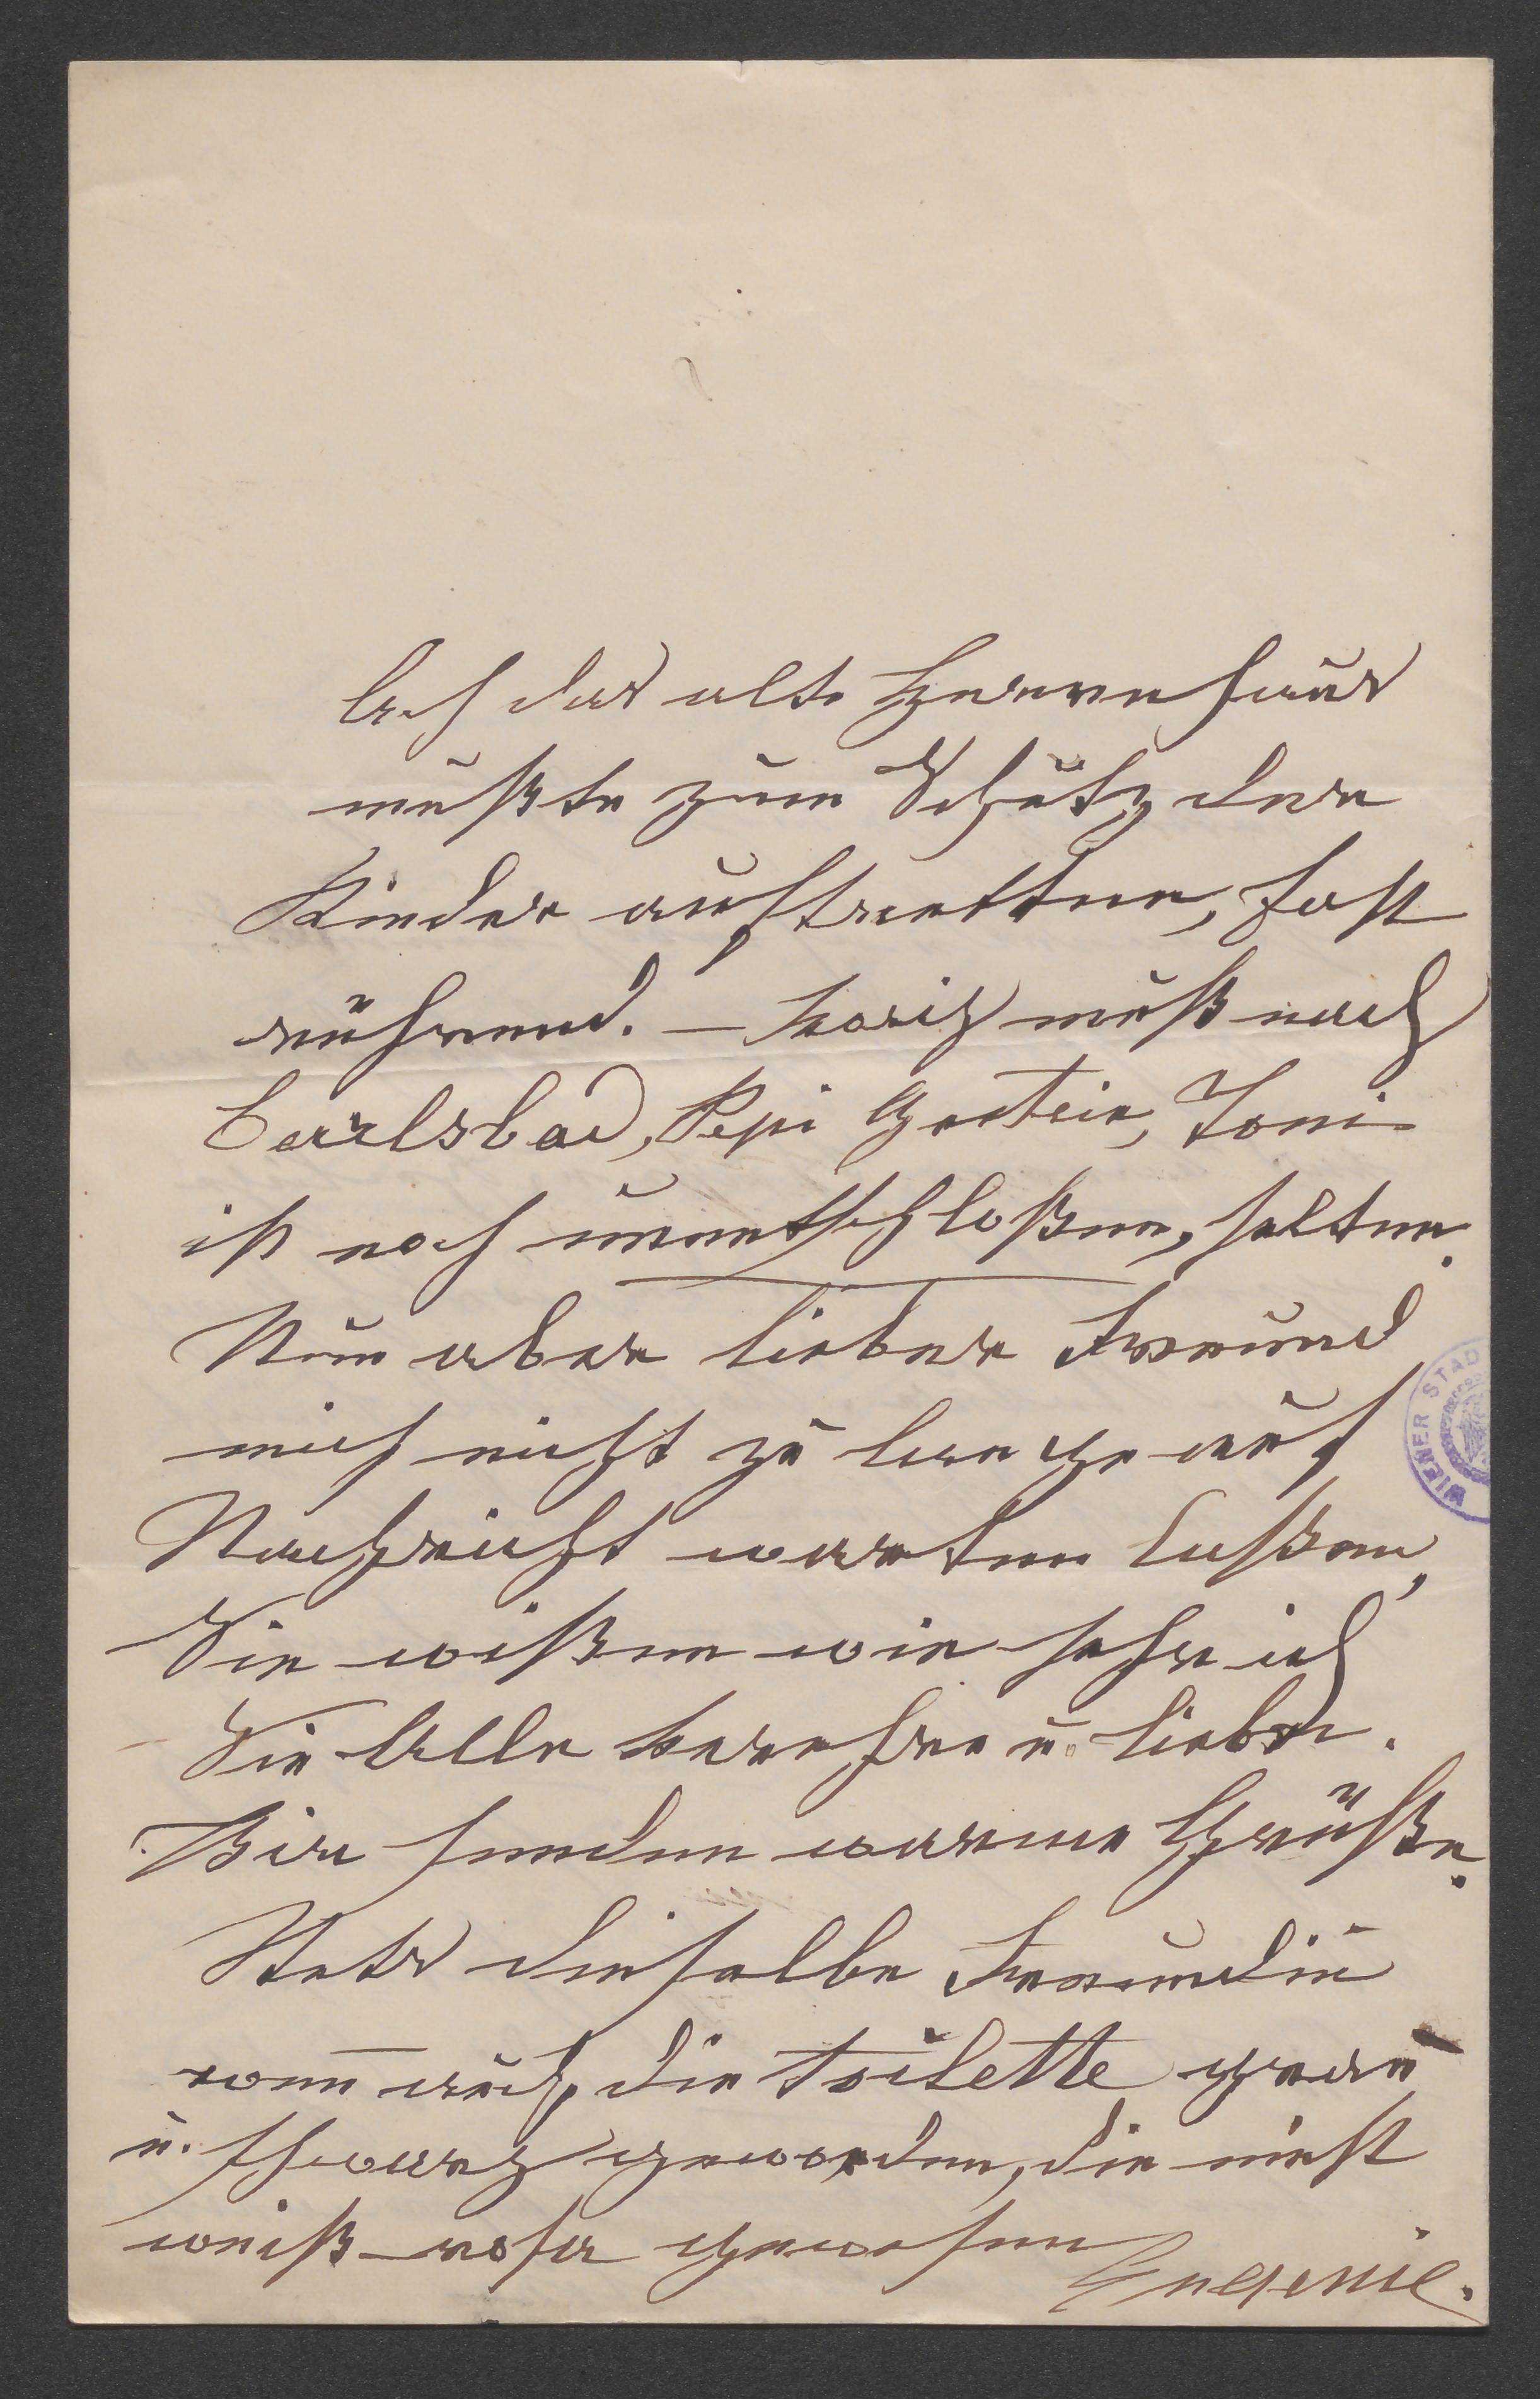 Ach das alte Herrenhaus
mußte zum Schutz der
Kinder auftretten, fast
rührend. – Moriz muß nach
Carlsbad, Pepi Gastein, Toni
ist noch unentschloßen, selten.
Nun aber lieber Freund
mich nicht zu lange auf
Nachricht warten laßen,
Sie wißen wie sehr ich
Sie Alle verehre u. liebe.
Wir senden warme Grüße.
Stets dieselbe Freundin
wenn auch die Toilette grau
u. schwarz geworden, die einst
weiß-rosa gewesen
Eugenie.
WIENER STAD